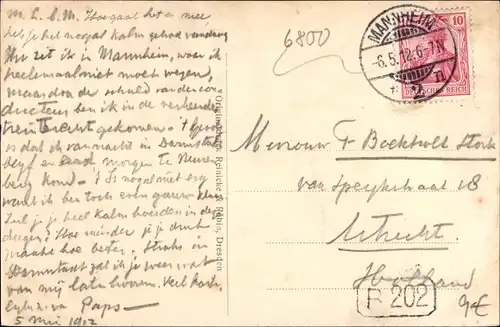 m. L. S. M. Hoe gaat het er mee
heb je het nogal kalm gehad vandaag
Nu zit ik in Mannheim, waar ik
heelemaal niet moet wezen,
maar door de schuld van den con
ducteur ben ik in de verkeerde
trein terecht gekomen. 't
is dat ik van nacht in Darmstadt
blyf en morgen te Neuren
berg kom. 't Is nogal niet erg
want ik ben toch even gauw klaar
Zul je je heel kalm houden in deze
dagen? Hoe minder je je druk
maakt hoe beter. Straks in
Darmstadt zal ik je weer wat
van mij laten hooren. Veel
Paps
5 Mei 1912
Reinicke & Rubin, Dresden
6800
MANNHEIM
-6.5.12.6-7N
* 2 n
10
DEUTSCHES REICH
Mevrouw F Boekholt Stork
van Speykstraat 18
Utrecht
Holland
R 202
9€